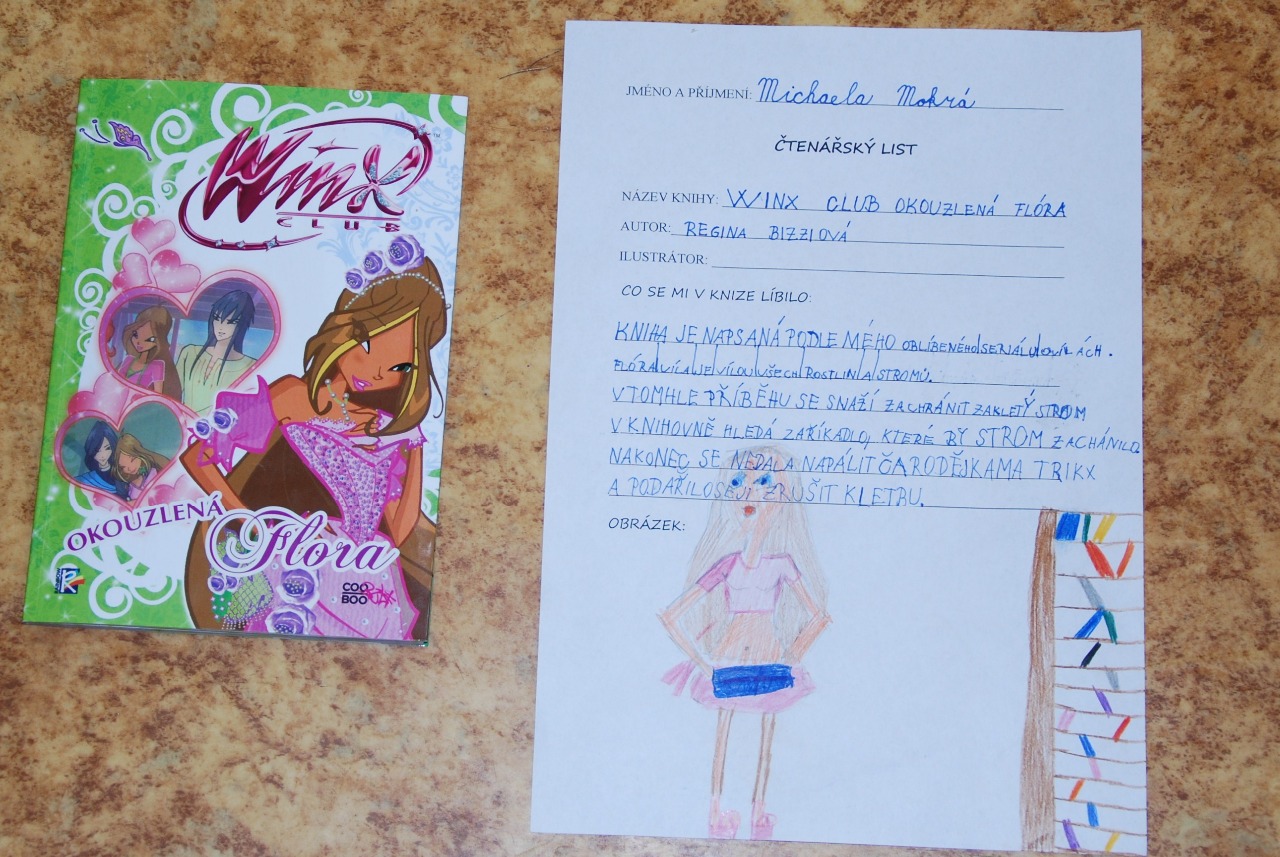 Winx
CLUB
OKOUZLENÁ
Flora
COO
BOO
JMÉNO A PŘÍJMENÍ: Michaela Mokrá
ČTENÁŘSKÝ LIST
NÁZEV KNIHY: WINX CLUB OKOUZLENÁ FLÓRA
AUTOR: REGINA BIZZIOVÁ
ILUSTRÁTOR:
CO SE MI V KNIZE LÍBILO:
KNIHA JE NAPSANÁ PODLE MÉHO OBLÍBENÉHO SERIÁLU O VÍLÁCH.
FLÓRA VÍLA JE VÍLOU VŠECH ROSTLIN A STROMŮ.
V TOMHLE PŘÍBĚHU SE SNAŽÍ ZACHRÁNIT ZAKLETÝ STROM
V KNIHOVNĚ HLEDÁ ZAŘÍKADLO, KTERÉ BY STROM ZACHÁNILO
NAKONEC SE NEDALA NAPÁLIT ČARODĚJKAMA TRIKX
A PODAŘILO SE JÍ ZRUŠIT KLETBU.
OBRÁZEK: